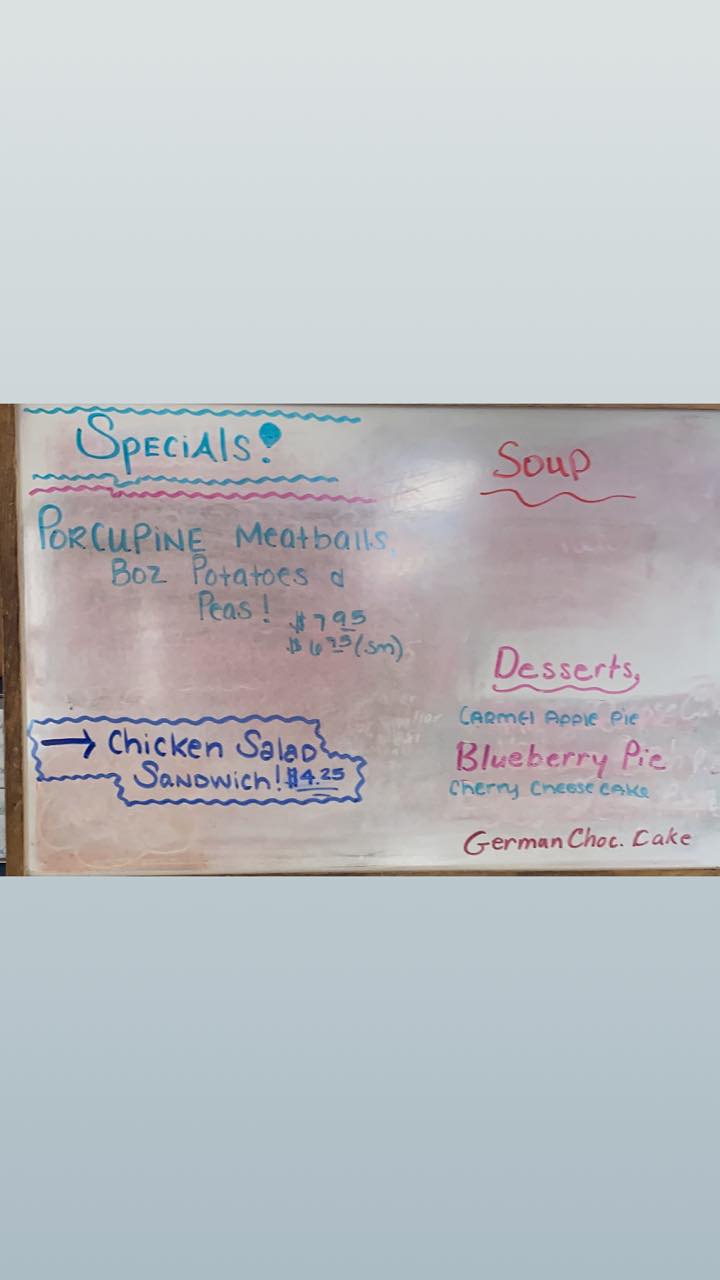 SPECiAlS!
PORCUPiNE Meatballs,
Boz Potatoes &
Peas!
$7.95
$6.75 (sm)
→ Chicken Salad
SANDWich! $4.25
Soup
Desserts,
CARMEl APPle Pie
Blueberry Pie
Cherry Cheese CAKe
German Choc. Cake